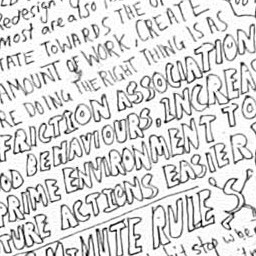 Redesign
most are also
TATE TOWARDS THE OP
AMOUNT OF WORK, CREATE
RE DOING THE RIGHT THING IS AS
FRICTION ASSOCIATION
OD BEHAVIOURS, INCREAS
PRIME ENVIRONMENT TO
TURE ACTIONS EASIER
MINUTE RULE
it stop when